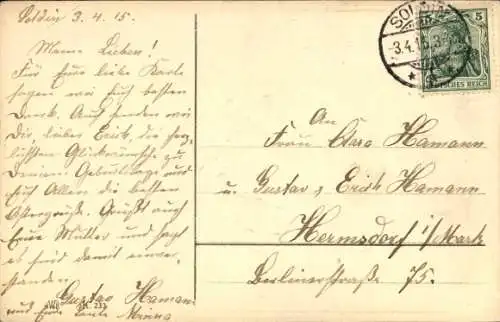 Soldin 3.4.15.
Meine Lieben!
Für Eure liebe Karte
sagen wir Euch besten
Dank. Auch senden wir
Dir, lieber Erich, die herz-
lichsten Glückwünsche zu
Deinem Geburtstage und
Euch Allen die besten
Ostergrüße. Grüßt auch
Eure Mutter und sagt
es sind damit einver-
standen
Gustav Hamann
und Eure Tante Minna
An
Frau Clara Hamann
u. Gustav & Erich Hamann
Hermsdorf i/Mark
Berlinerstrasse 75.
SOLDIN
3.4.15.
5
DEUTSCHES REICH